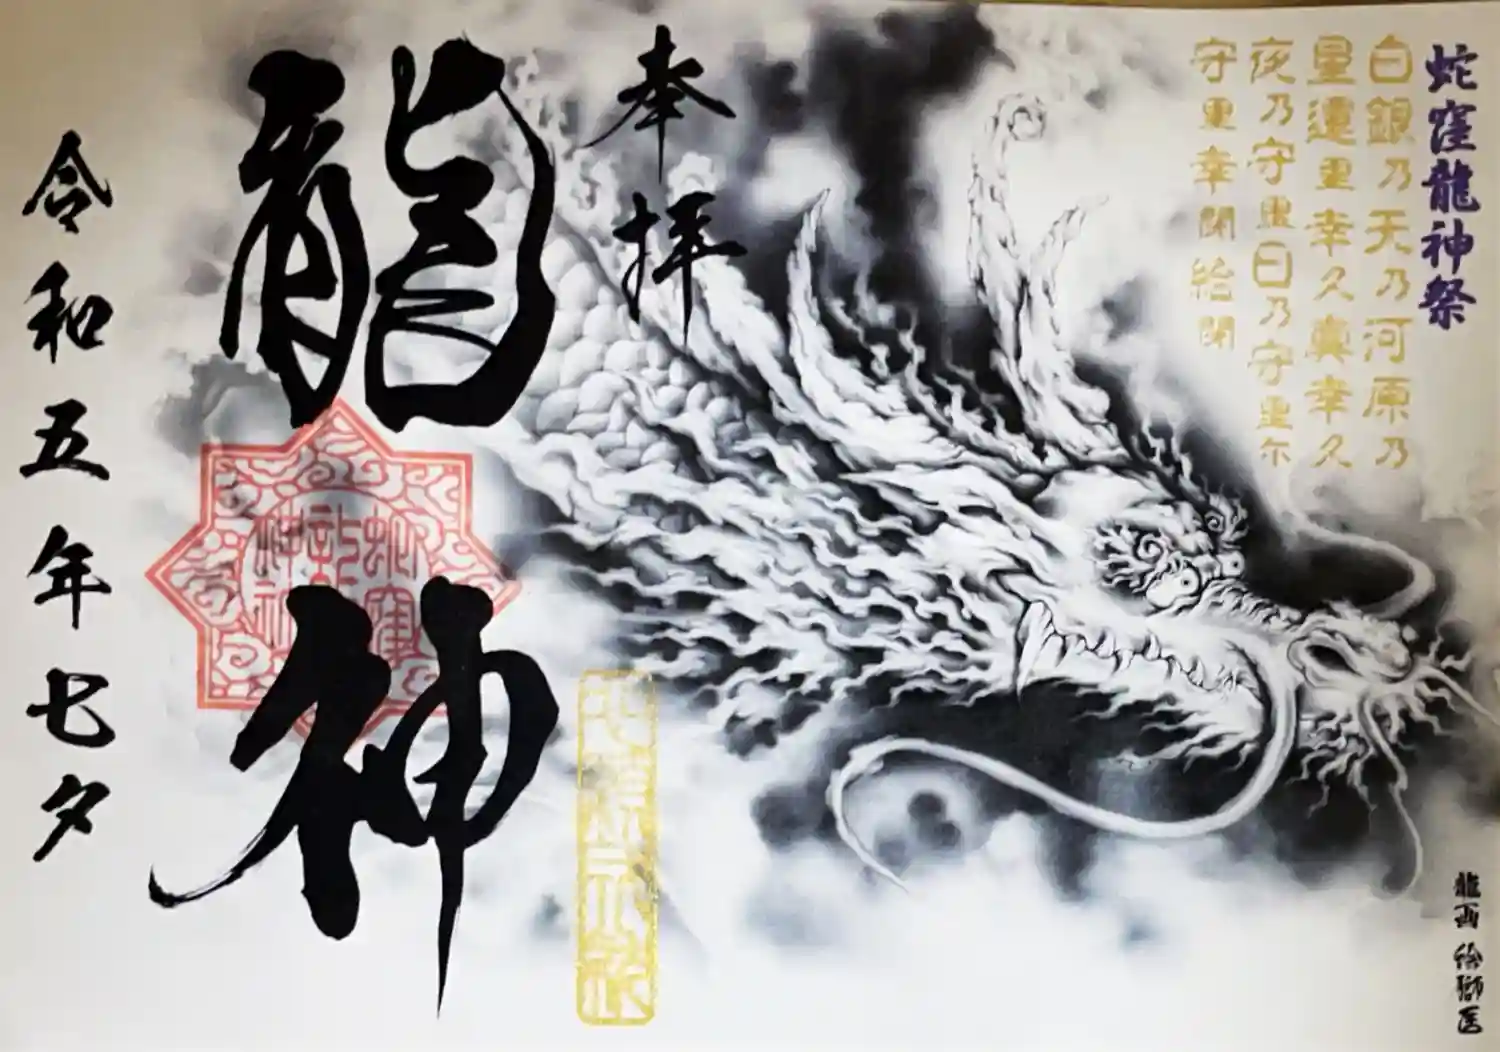 蛇窪龍神祭
白銀乃天乃河原乃
星還里幸久真幸久
夜乃守里日乃守里尓
守里幸聞給聞
奉拝
龍神
蛇窪
龍神
令和五年七夕
龍画 絵獅匡